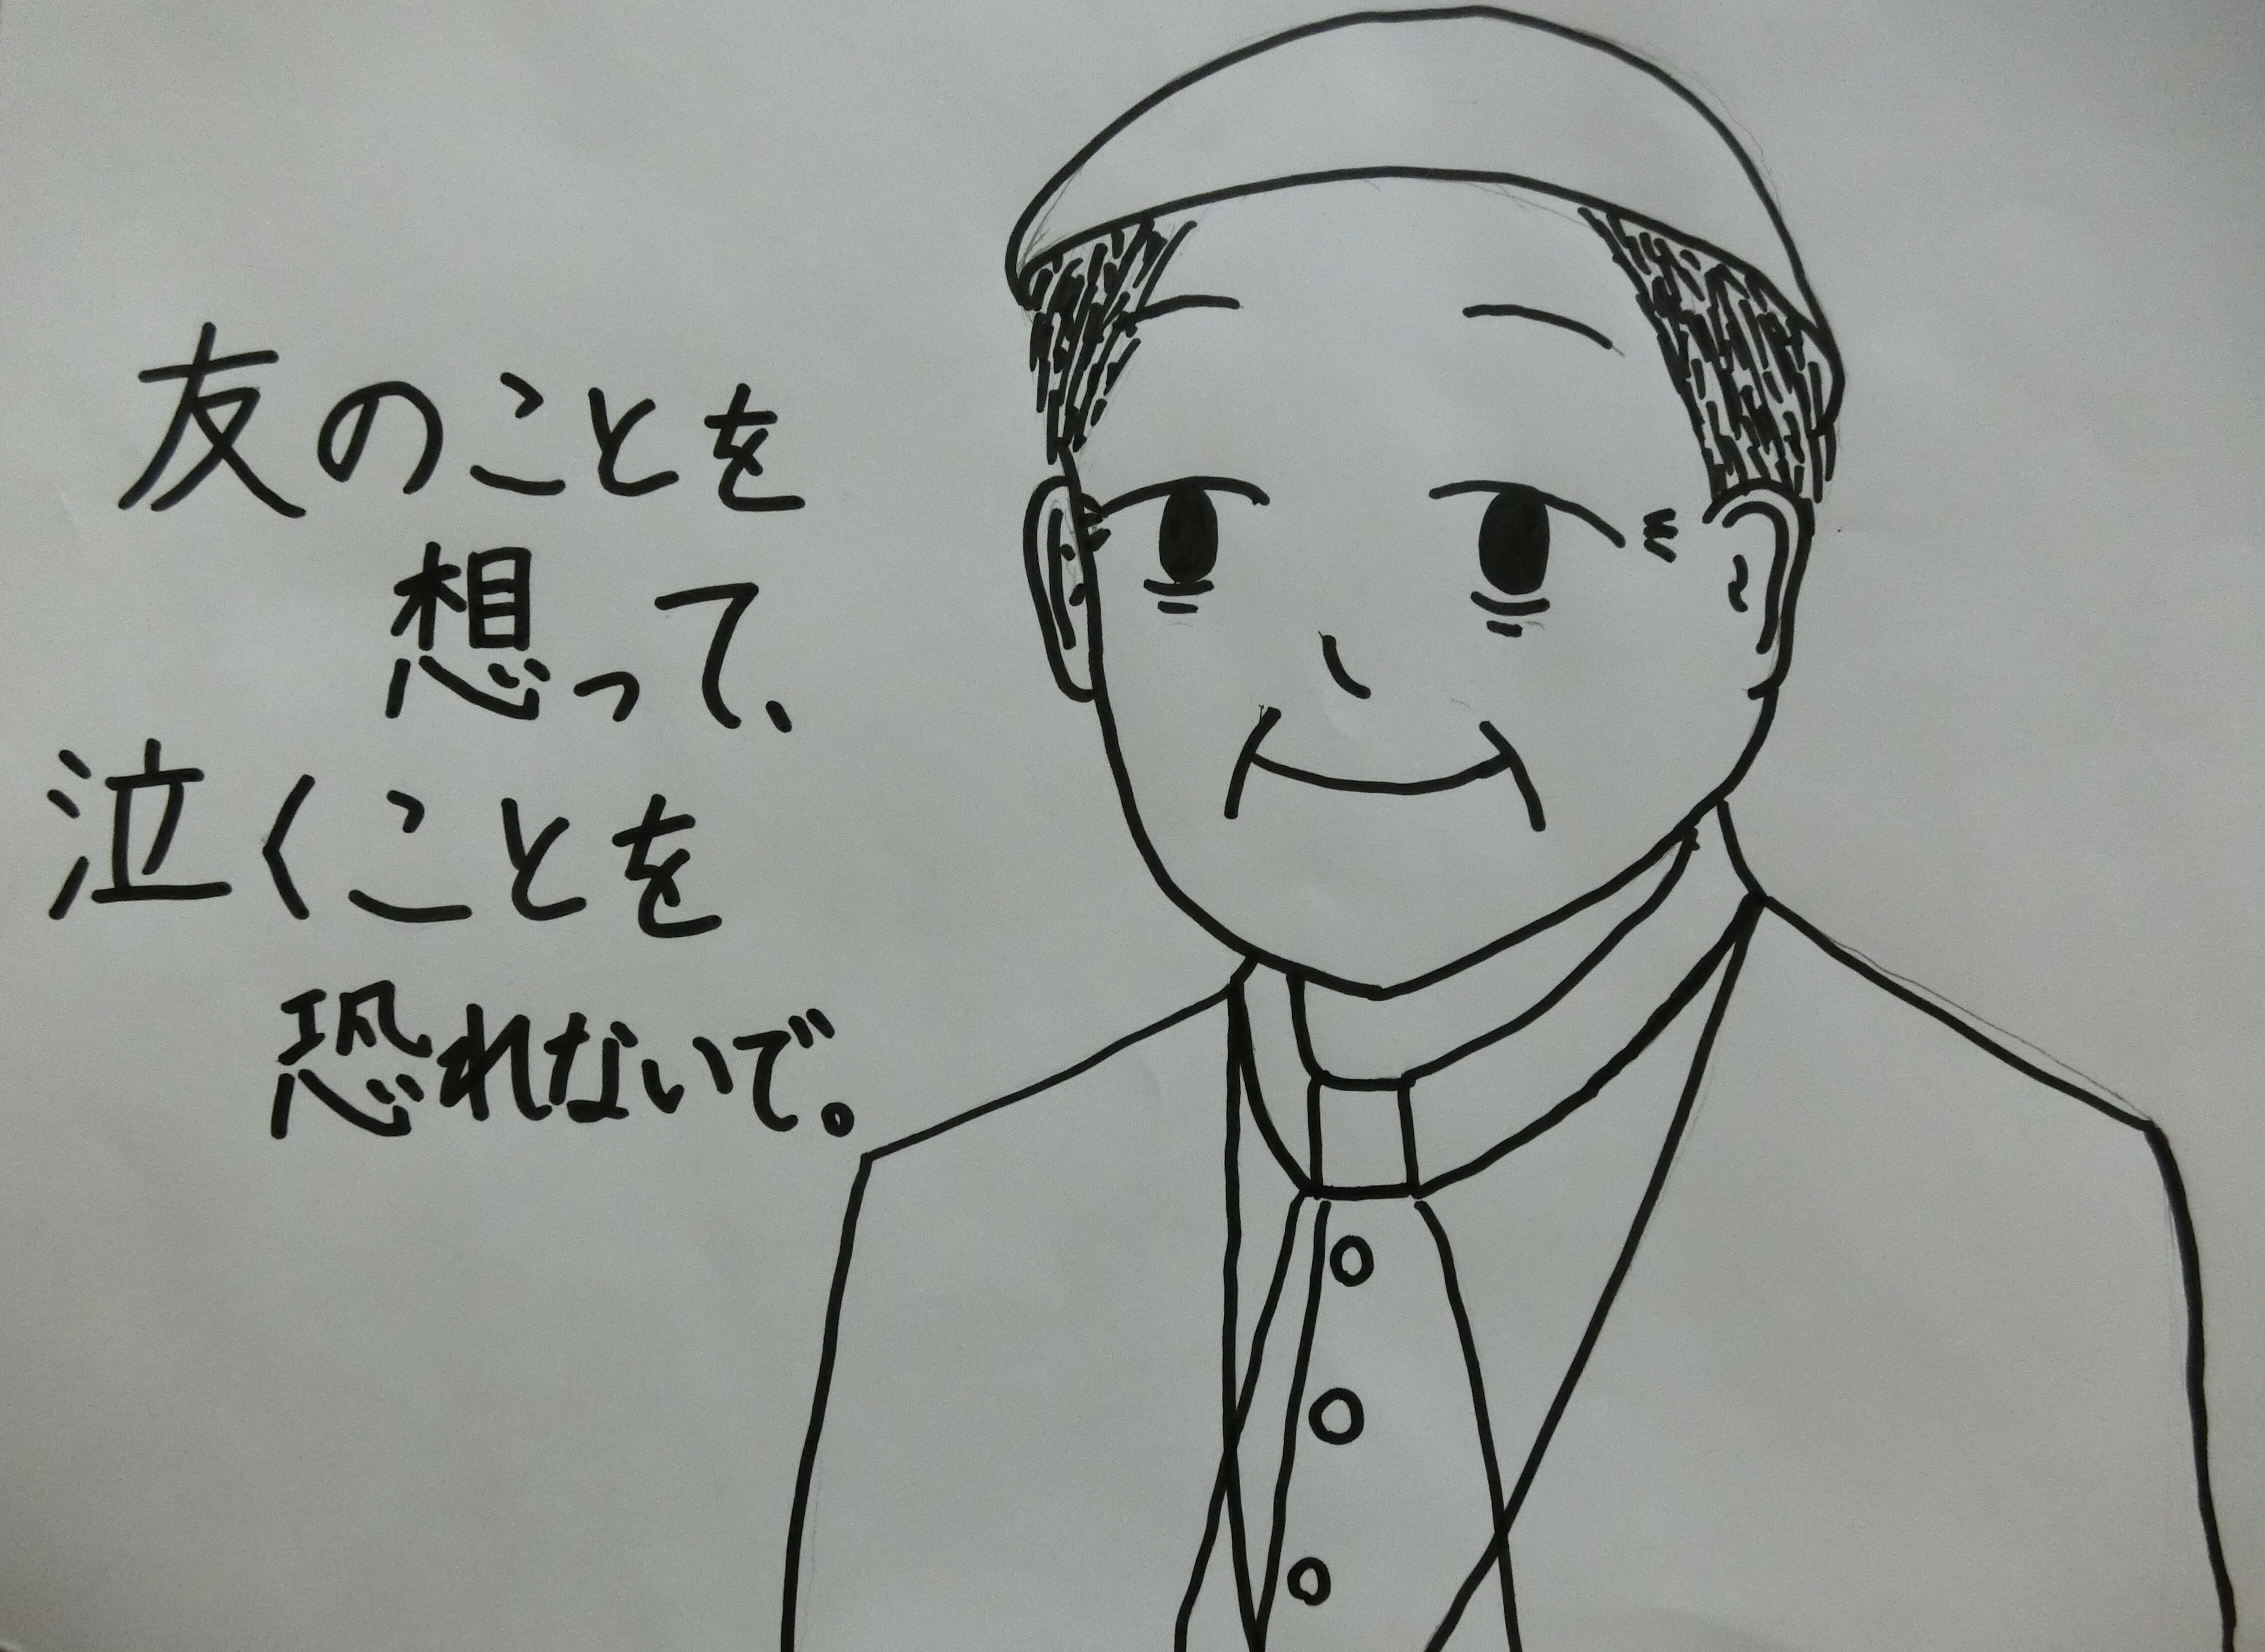 友のことを
想って、
泣くことを
恐れないで。